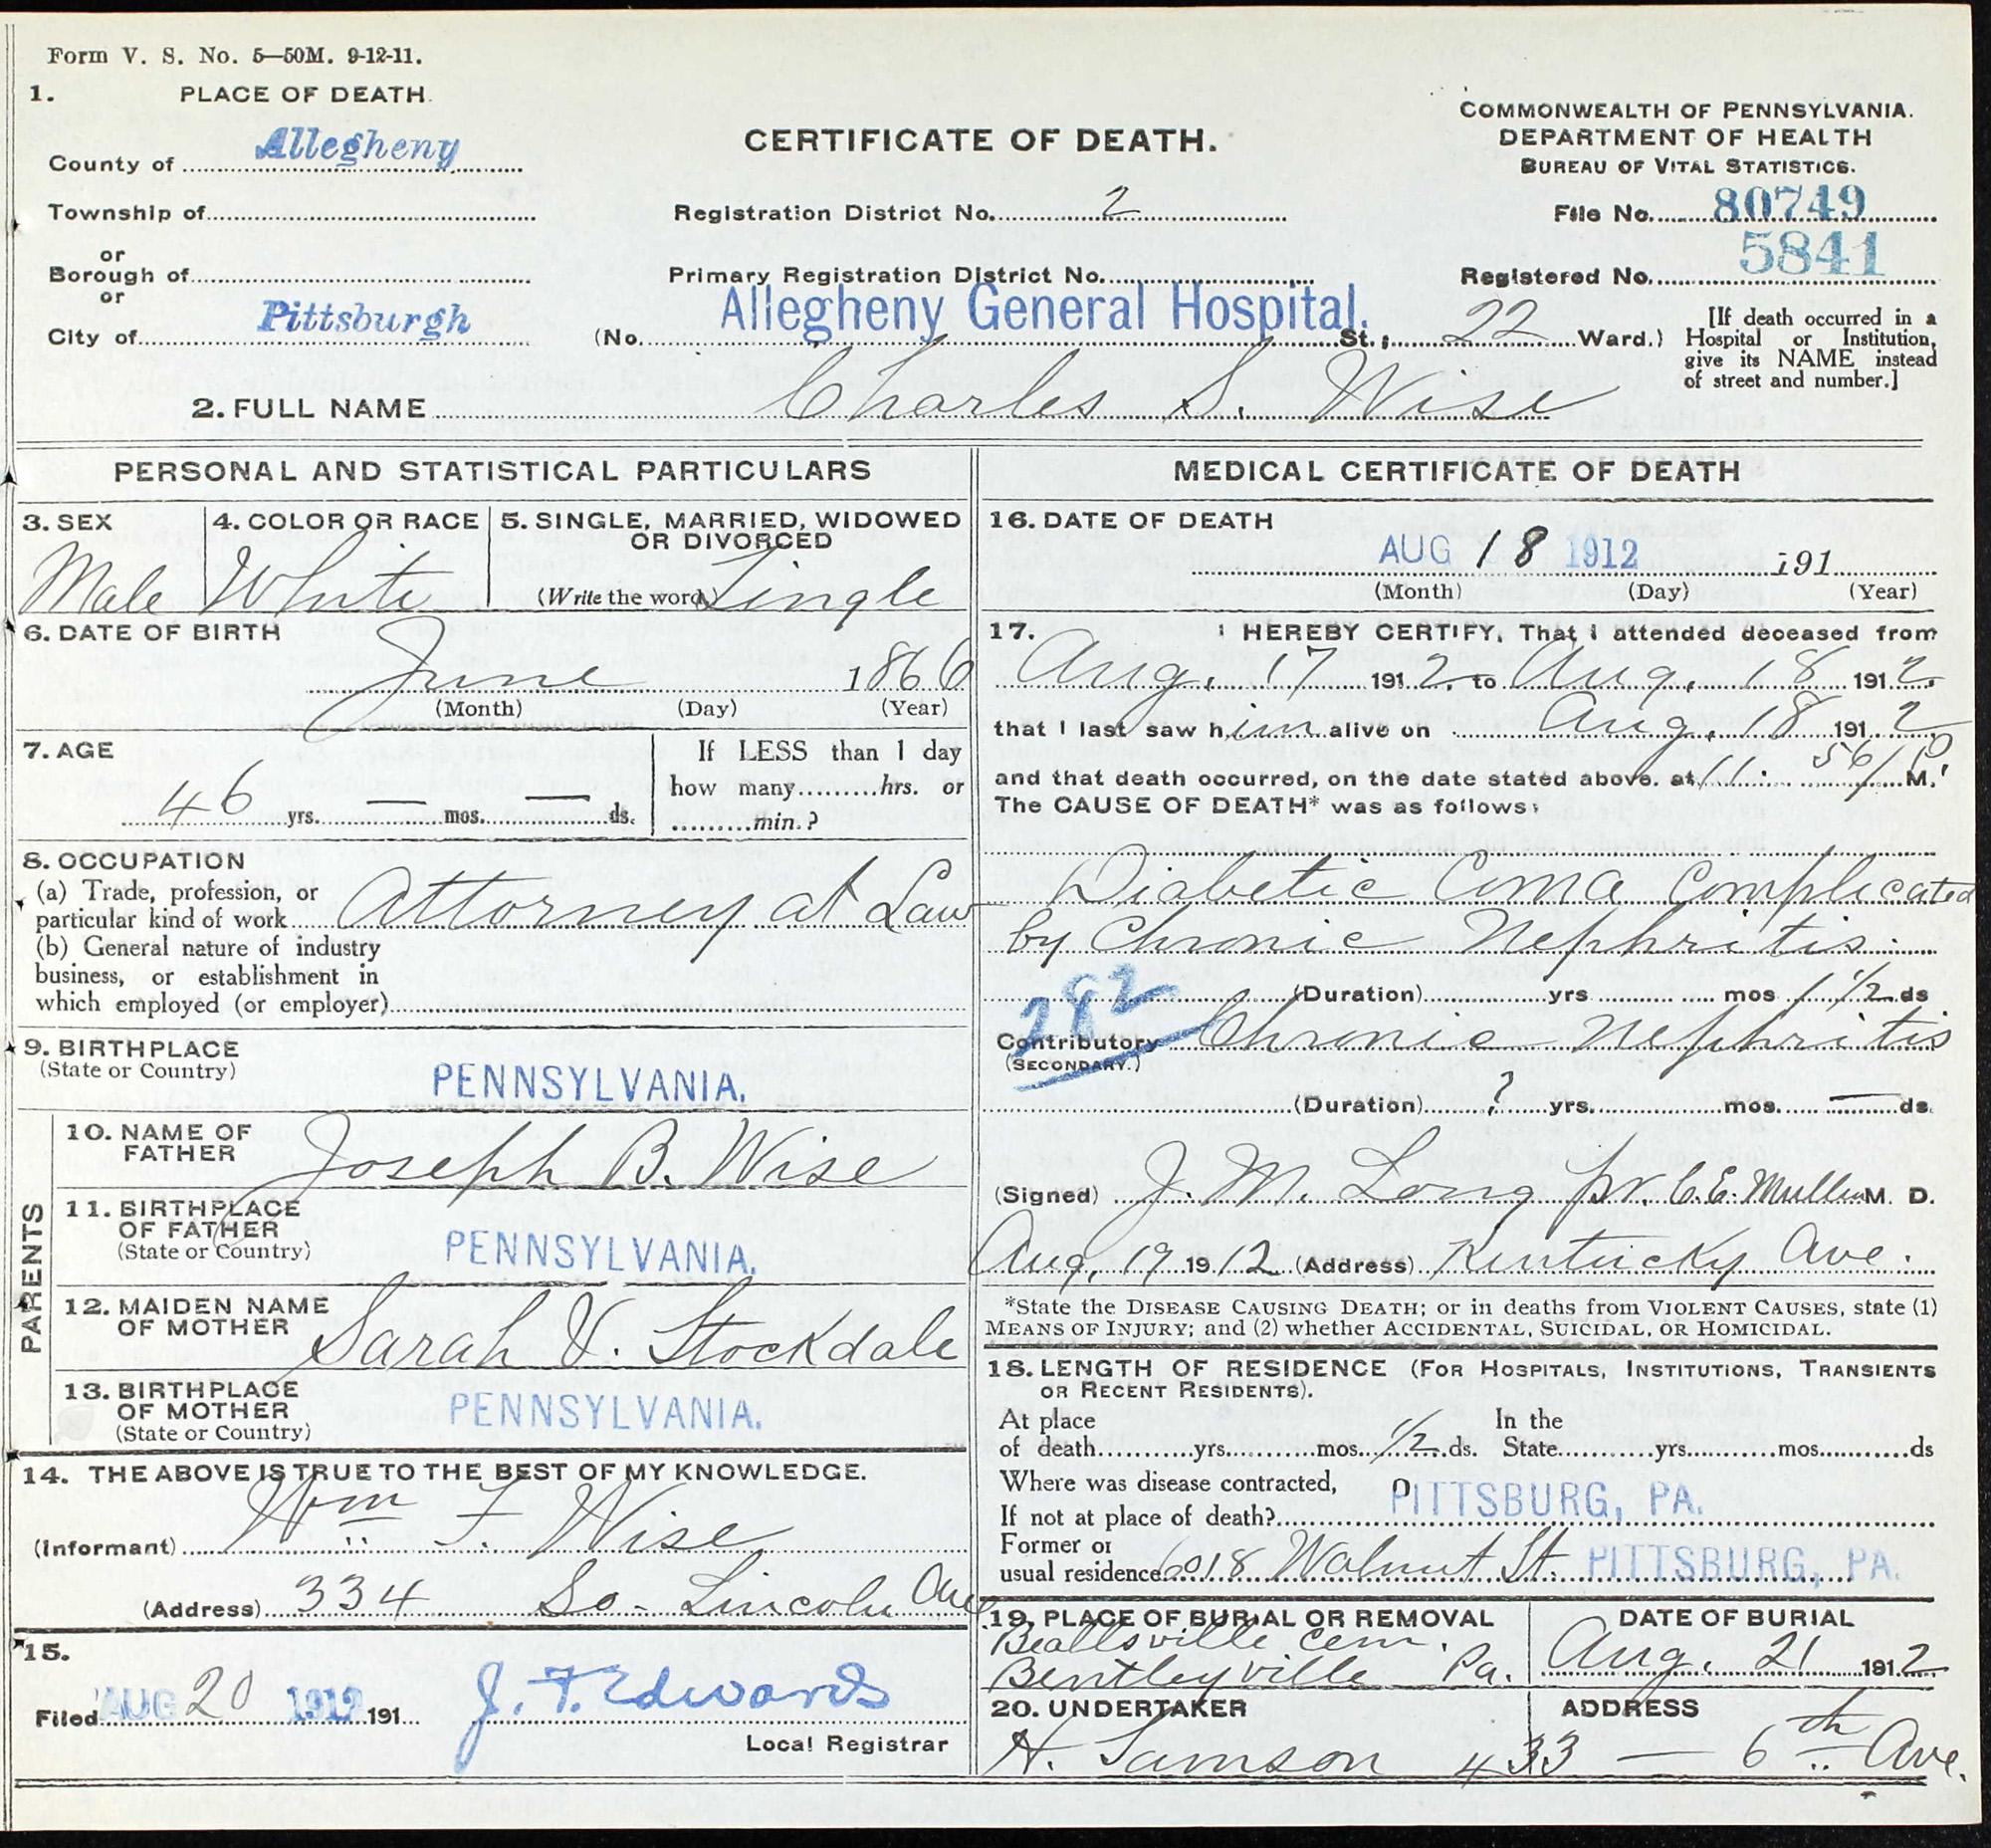 Form V. S. No. 5—50M. 9-12-11.
1. PLACE OF DEATH.
County of Allegheny
Township of
or
Borough of
or
City of Pittsburgh
CERTIFICATE OF DEATH.
Registration District No. 2
Primary Registration District No.
(No. Allegheny General Hospital. St.; 22 Ward.)
COMMONWEALTH OF PENNSYLVANIA.
DEPARTMENT OF HEALTH
BUREAU OF VITAL STATISTICS.
File No. 80749
Registered No. 5841
[If death occurred in a
Hospital or Institution,
give its NAME instead
of street and number.]
2. FULL NAME Charles S. Wise
PERSONAL AND STATISTICAL PARTICULARS
3. SEX
Male
4. COLOR OR RACE
White
5. SINGLE, MARRIED, WIDOWED
OR DIVORCED
(Write the word) Single
6. DATE OF BIRTH
June 1866
(Month) (Day) (Year)
7. AGE
46 yrs. — mos. — ds.
If LESS than 1 day
how many hrs. or
min.?
8. OCCUPATION
(a) Trade, profession, or
particular kind of work Attorney at Law
(b) General nature of industry
business, or establishment in
which employed (or employer)
9. BIRTHPLACE
(State or Country)
PENNSYLVANIA.
PARENTS
10. NAME OF
FATHER
Joseph B. Wise
11. BIRTHPLACE
OF FATHER
(State or Country)
PENNSYLVANIA.
12. MAIDEN NAME
OF MOTHER
Sarah V. Stockdale
13. BIRTHPLACE
OF MOTHER
(State or Country)
PENNSYLVANIA.
14. THE ABOVE IS TRUE TO THE BEST OF MY KNOWLEDGE.
(Informant) Wm F. Wise
(Address) 334 So- Lincoln Ave
15.
Filed AUG 20 1912 191
J. F. Edwards
Local Registrar
MEDICAL CERTIFICATE OF DEATH
16. DATE OF DEATH
AUG 18 1912, 191
(Month) (Day) (Year)
17. I HEREBY CERTIFY, That I attended deceased from
Aug. 17 1912, to Aug. 18 1912,
that I last saw him alive on Aug. 18 1912
and that death occurred, on the date stated above, at 11: 56 P. M.
The CAUSE OF DEATH* was as follows:
Diabetic Coma Complicated
by Chronic Nephritis.
(Duration) yrs mos 1 1/2 ds
282
Contributory Chronic Nephritis
(SECONDARY.)
(Duration) ? yrs. mos. — ds.
(Signed) J. M. Long pr. C. E. Mullin M. D.
Aug, 19 1912 (Address) Kentucky Ave.
*State the DISEASE CAUSING DEATH; or in deaths from VIOLENT CAUSES, state (1)
MEANS OF INJURY; and (2) whether ACCIDENTAL, SUICIDAL, OR HOMICIDAL.
18. LENGTH OF RESIDENCE (FOR HOSPITALS, INSTITUTIONS, TRANSIENTS
OR RECENT RESIDENTS).
At place
of death yrs. mos. 1/2 ds.
In the
State yrs. mos. ds
Where was disease contracted,
If not at place of death? PITTSBURG, PA.
Former or
usual residence 6018 Walnut St. PITTSBURG, PA.
19. PLACE OF BURIAL OR REMOVAL
Beallsville Cem.
Bentleyville Pa.
DATE OF BURIAL
Aug. 21 1912
20. UNDERTAKER
H. Samson
ADDRESS
433 — 6th Ave.